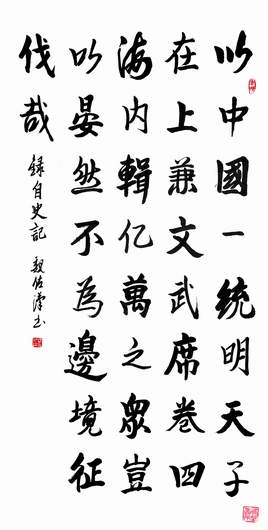 以中國一統明天子
在上兼文武席卷四
海内輯亿萬之眾豈
以晏然不為邊境征
伐哉
錄自史記 佐漢书